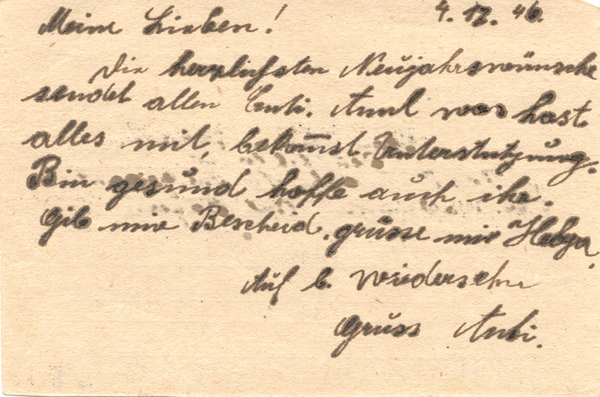 Meine Lieben! 4.12.46.
Die herzlichsten Neujahrswünsche
sendet allen Anti. was hast
alles mit, bekommst Unterstutzung.
Bin gesund hoffe auch ihr.
Gib mir Bescheid. grüsse mir Helga
Auf b. wiedersehn
Gruss Anti.